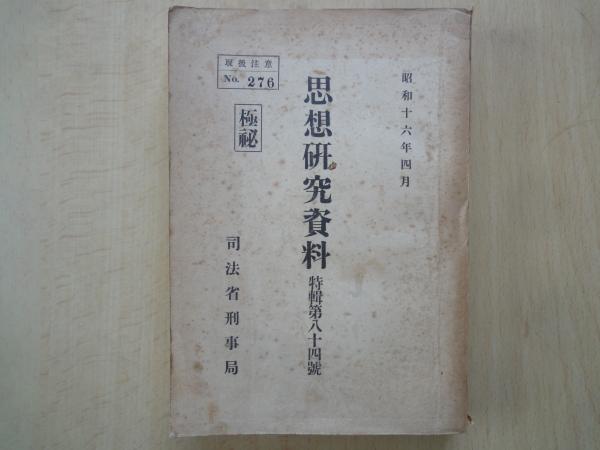 昭和十六年四月
思想研究資料 特輯第八十四號
取扱注意
No. 276
極祕
司法省刑事局